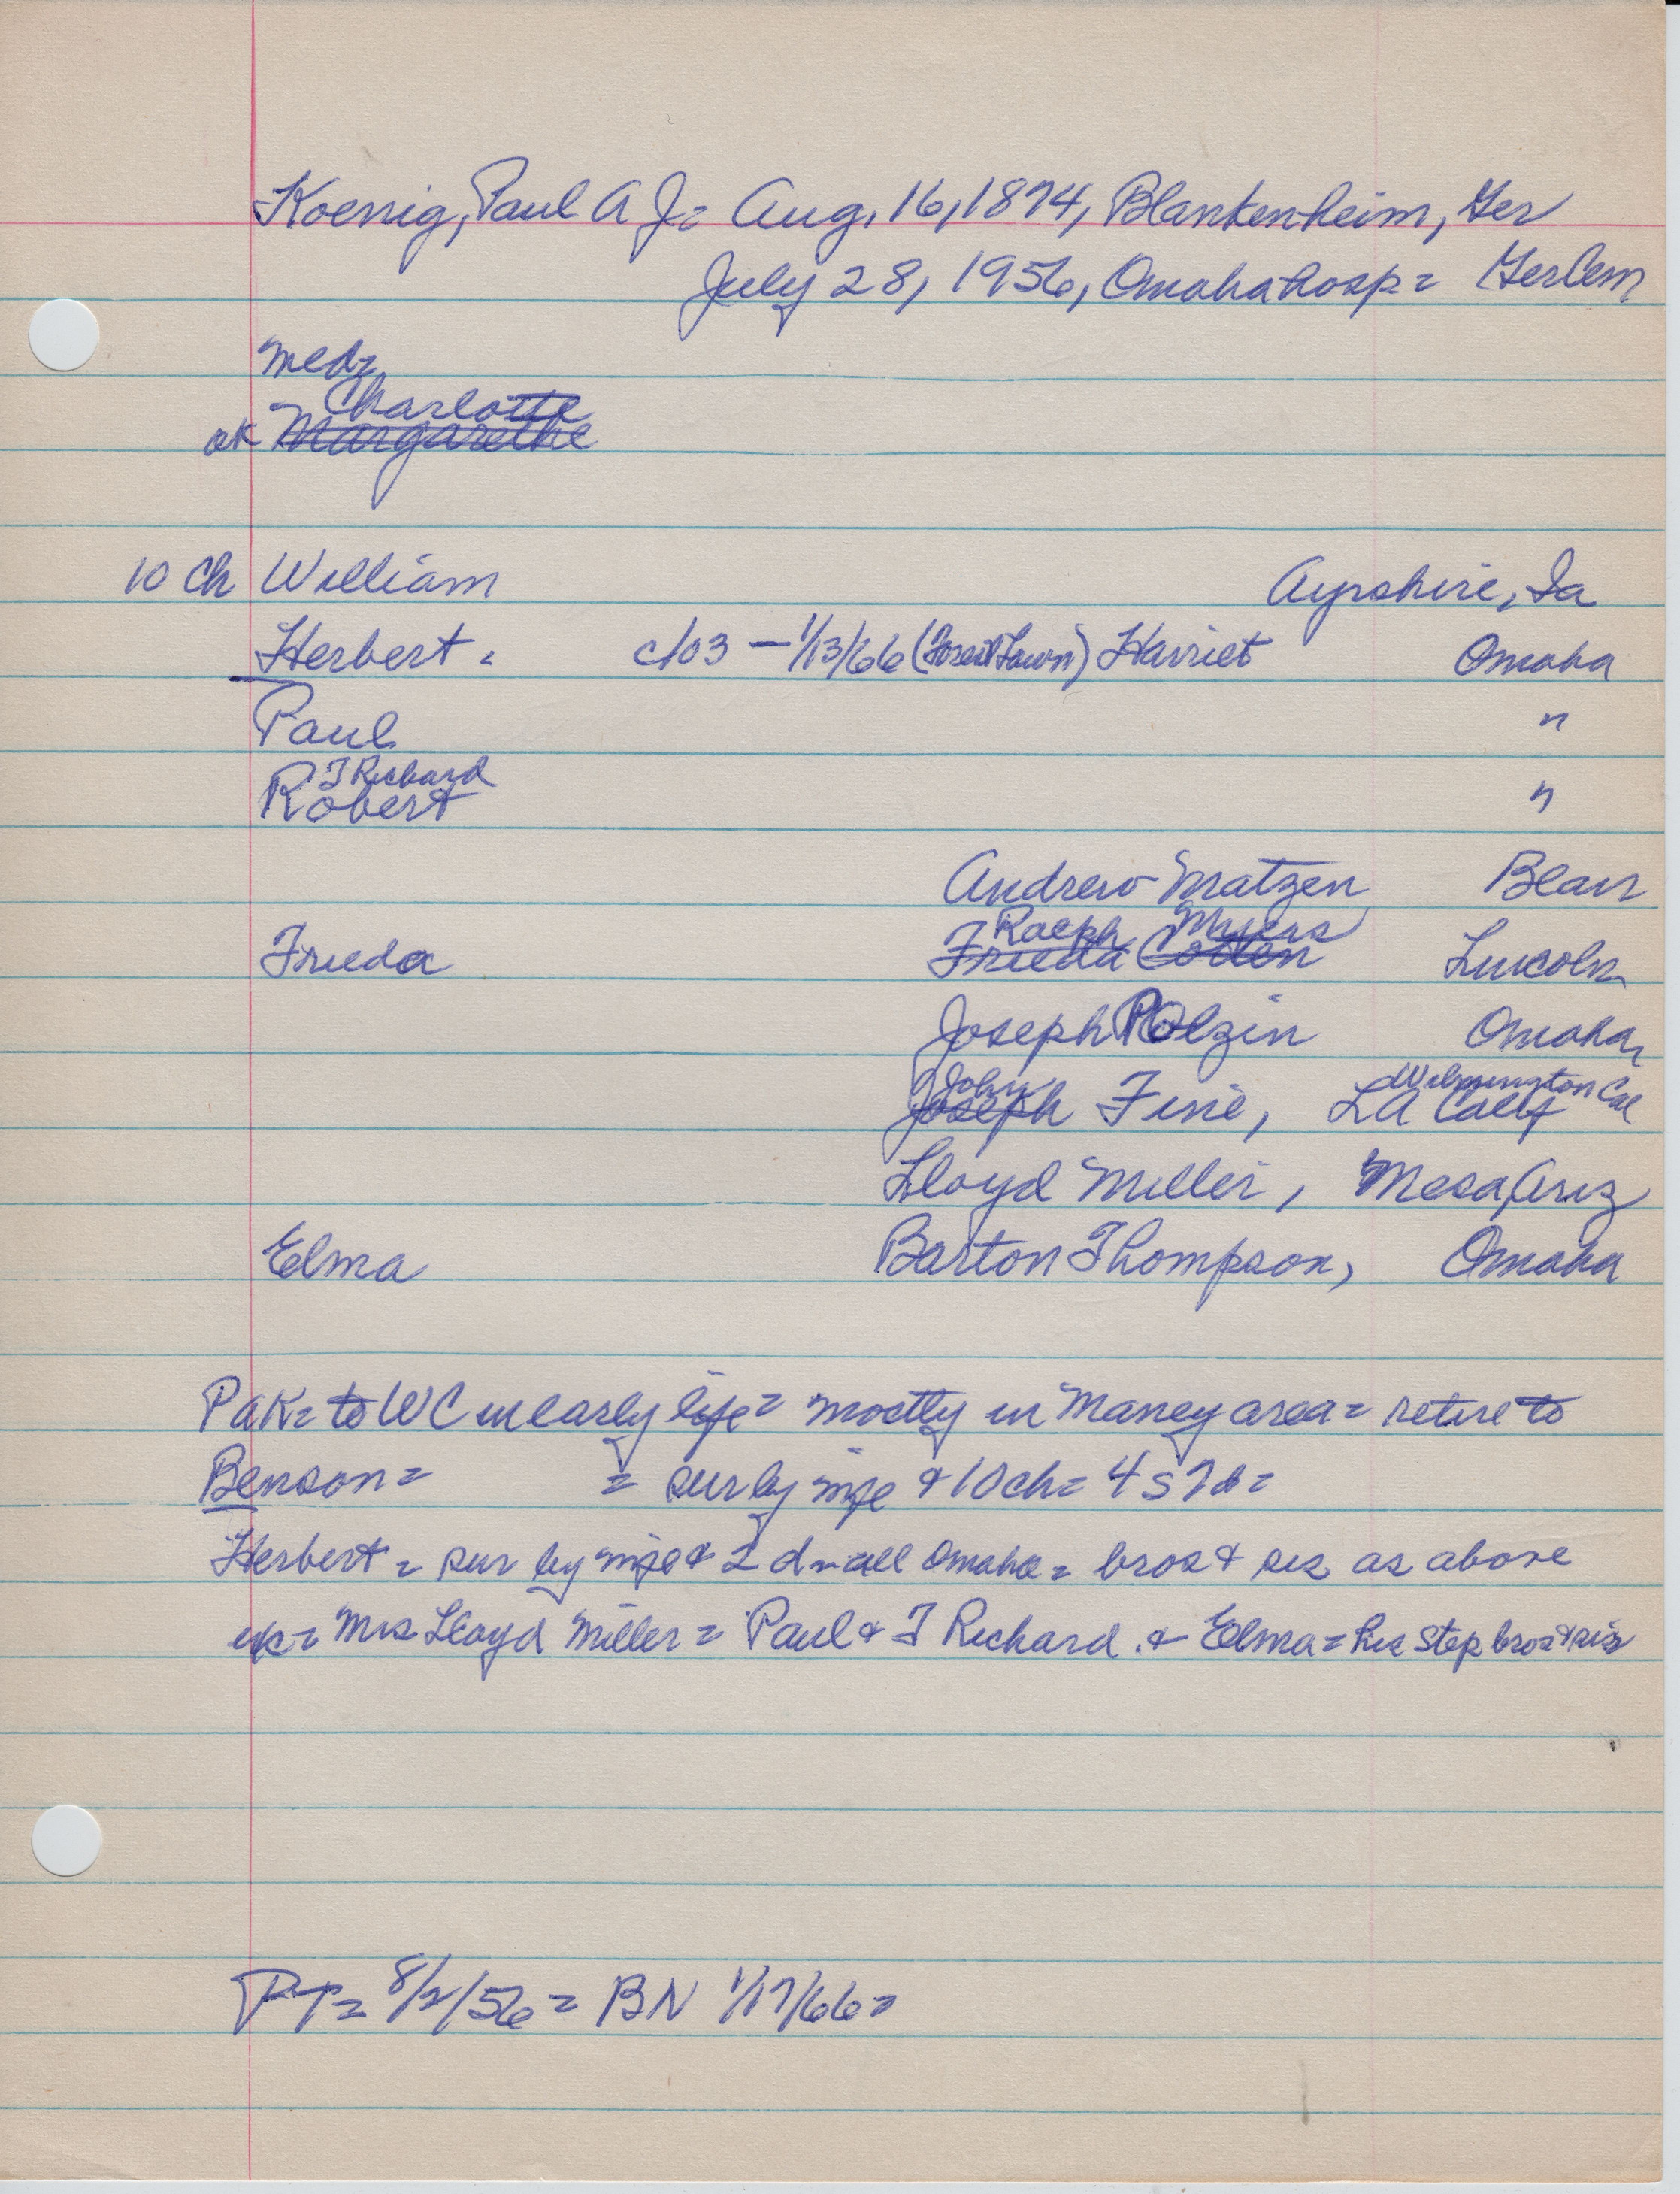 Koenig, Paul A Jr= Aug. 16, 1874, Blankenheim, Ger
July 28, 1956, Omaha hosp= Ger Cem
med=
Charlotte
ok Margarethe
10 ch William Ayrshire, Ia
Herbert = c/03 — 1/13/66 (Forest Lawn) Harriet Omaha
Paul "
T Richard
Robert "
Andrew Matzen Blair
Ralph Myers
Frieda Frieda Cotten Lincoln
Joseph Polzin Omaha,
John Wilmington Cal
Joseph Fine, LA Calif
Lloyd Miller, Mesa, Ariz
Elma Barton Thompson, Omaha
PAK= to WC in early life= mostly in Maney area= retire to
Benson= = sur by wife & 10 ch= 4 s 7 d=
Herbert = sur by wife & 2 d - all Omaha= bros & sis as above
ex= Mrs Lloyd Miller = Paul & T Richard. & Elma = his step bros & sis
PT= 8/2/56= BN 1/17/66=